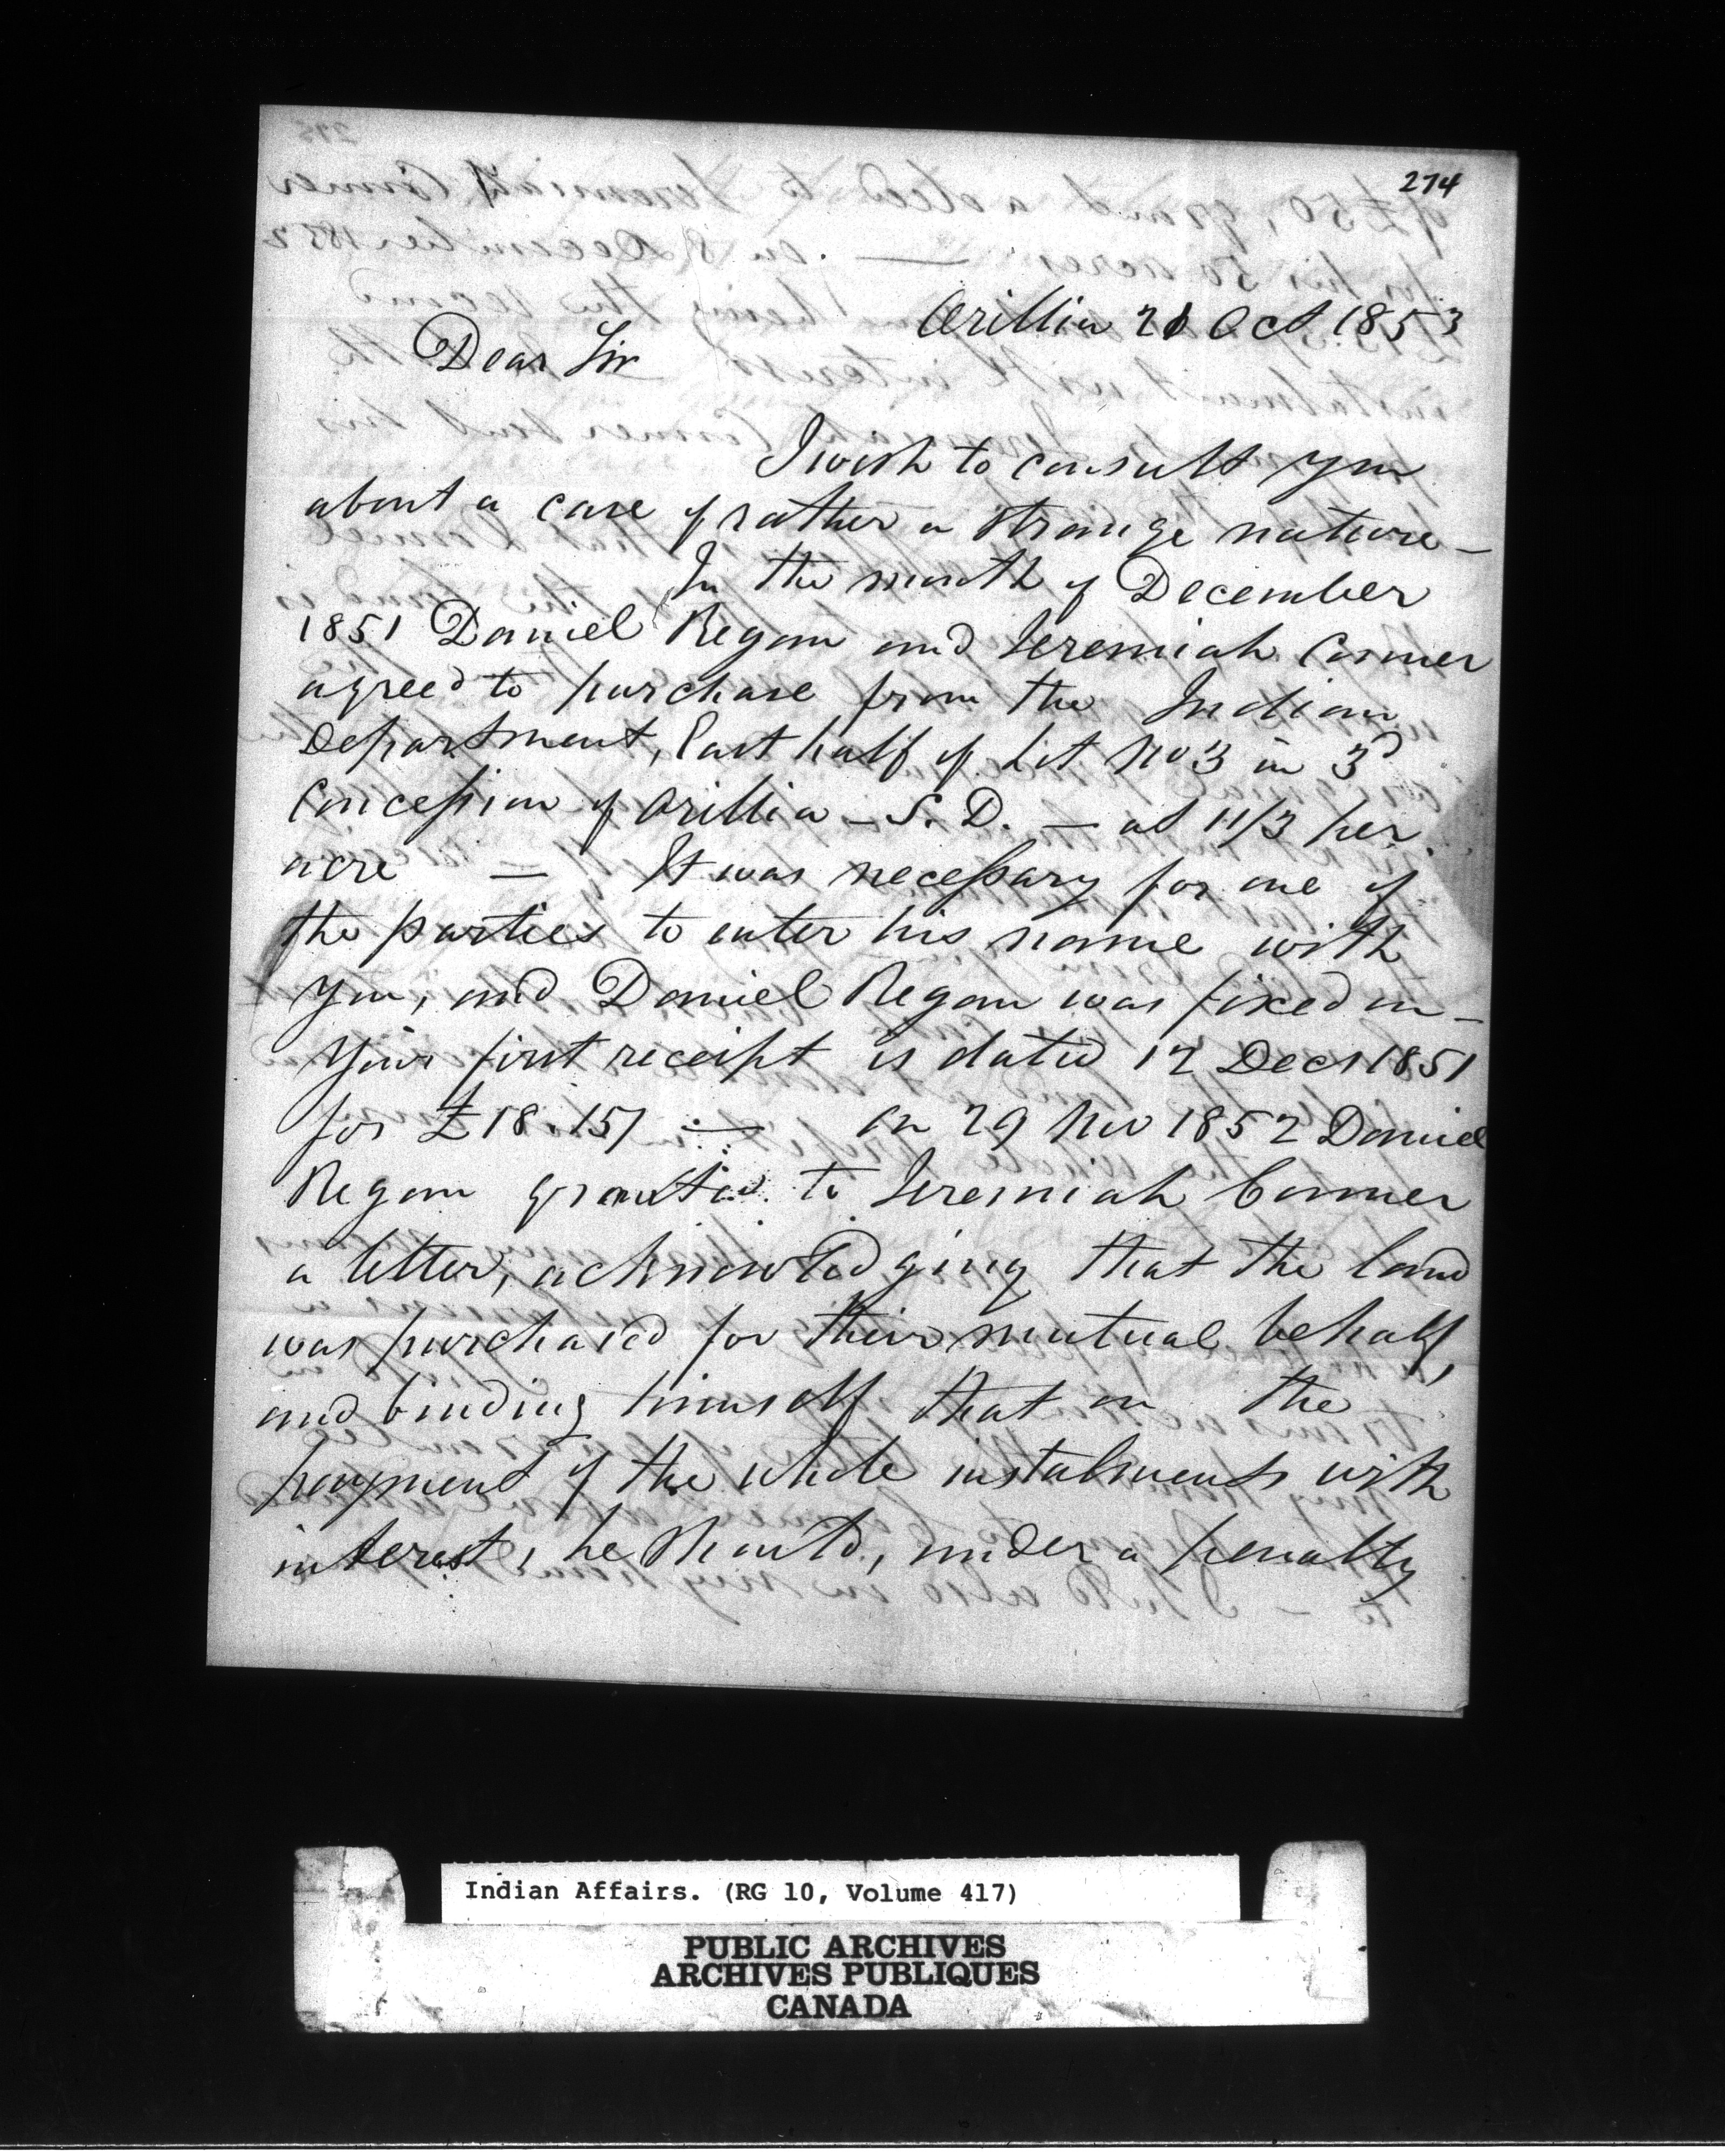 274
Orillia 21 Oct. 1853
Dear Sir
I wish to consult you
about a case of rather a strange nature —
In the month of December
1851 Daniel Regan and Jeremiah Conner
agreed to purchase from the Indian
Department, East half of Lot No 3 in 3d
Concession of Orillia — S. D. — at 11/3 per
acre — It was necessary for one of
the parties to enter his name with
you, and Daniel Regan was fixed on —
Your first receipt is dated 12 Decr 1851
for £18.15/ — On 29 Nov 1852 Daniel
Regan granted to Jeremiah Conner
a letter, acknowledging that the land
was purchased for their mutual behalf,
and binding himself that on the
payment of the whole instalments with
interest, he should, under a penalty
Indian Affairs. (RG 10, Volume 417)
PUBLIC ARCHIVES
ARCHIVES PUBLIQUES
CANADA